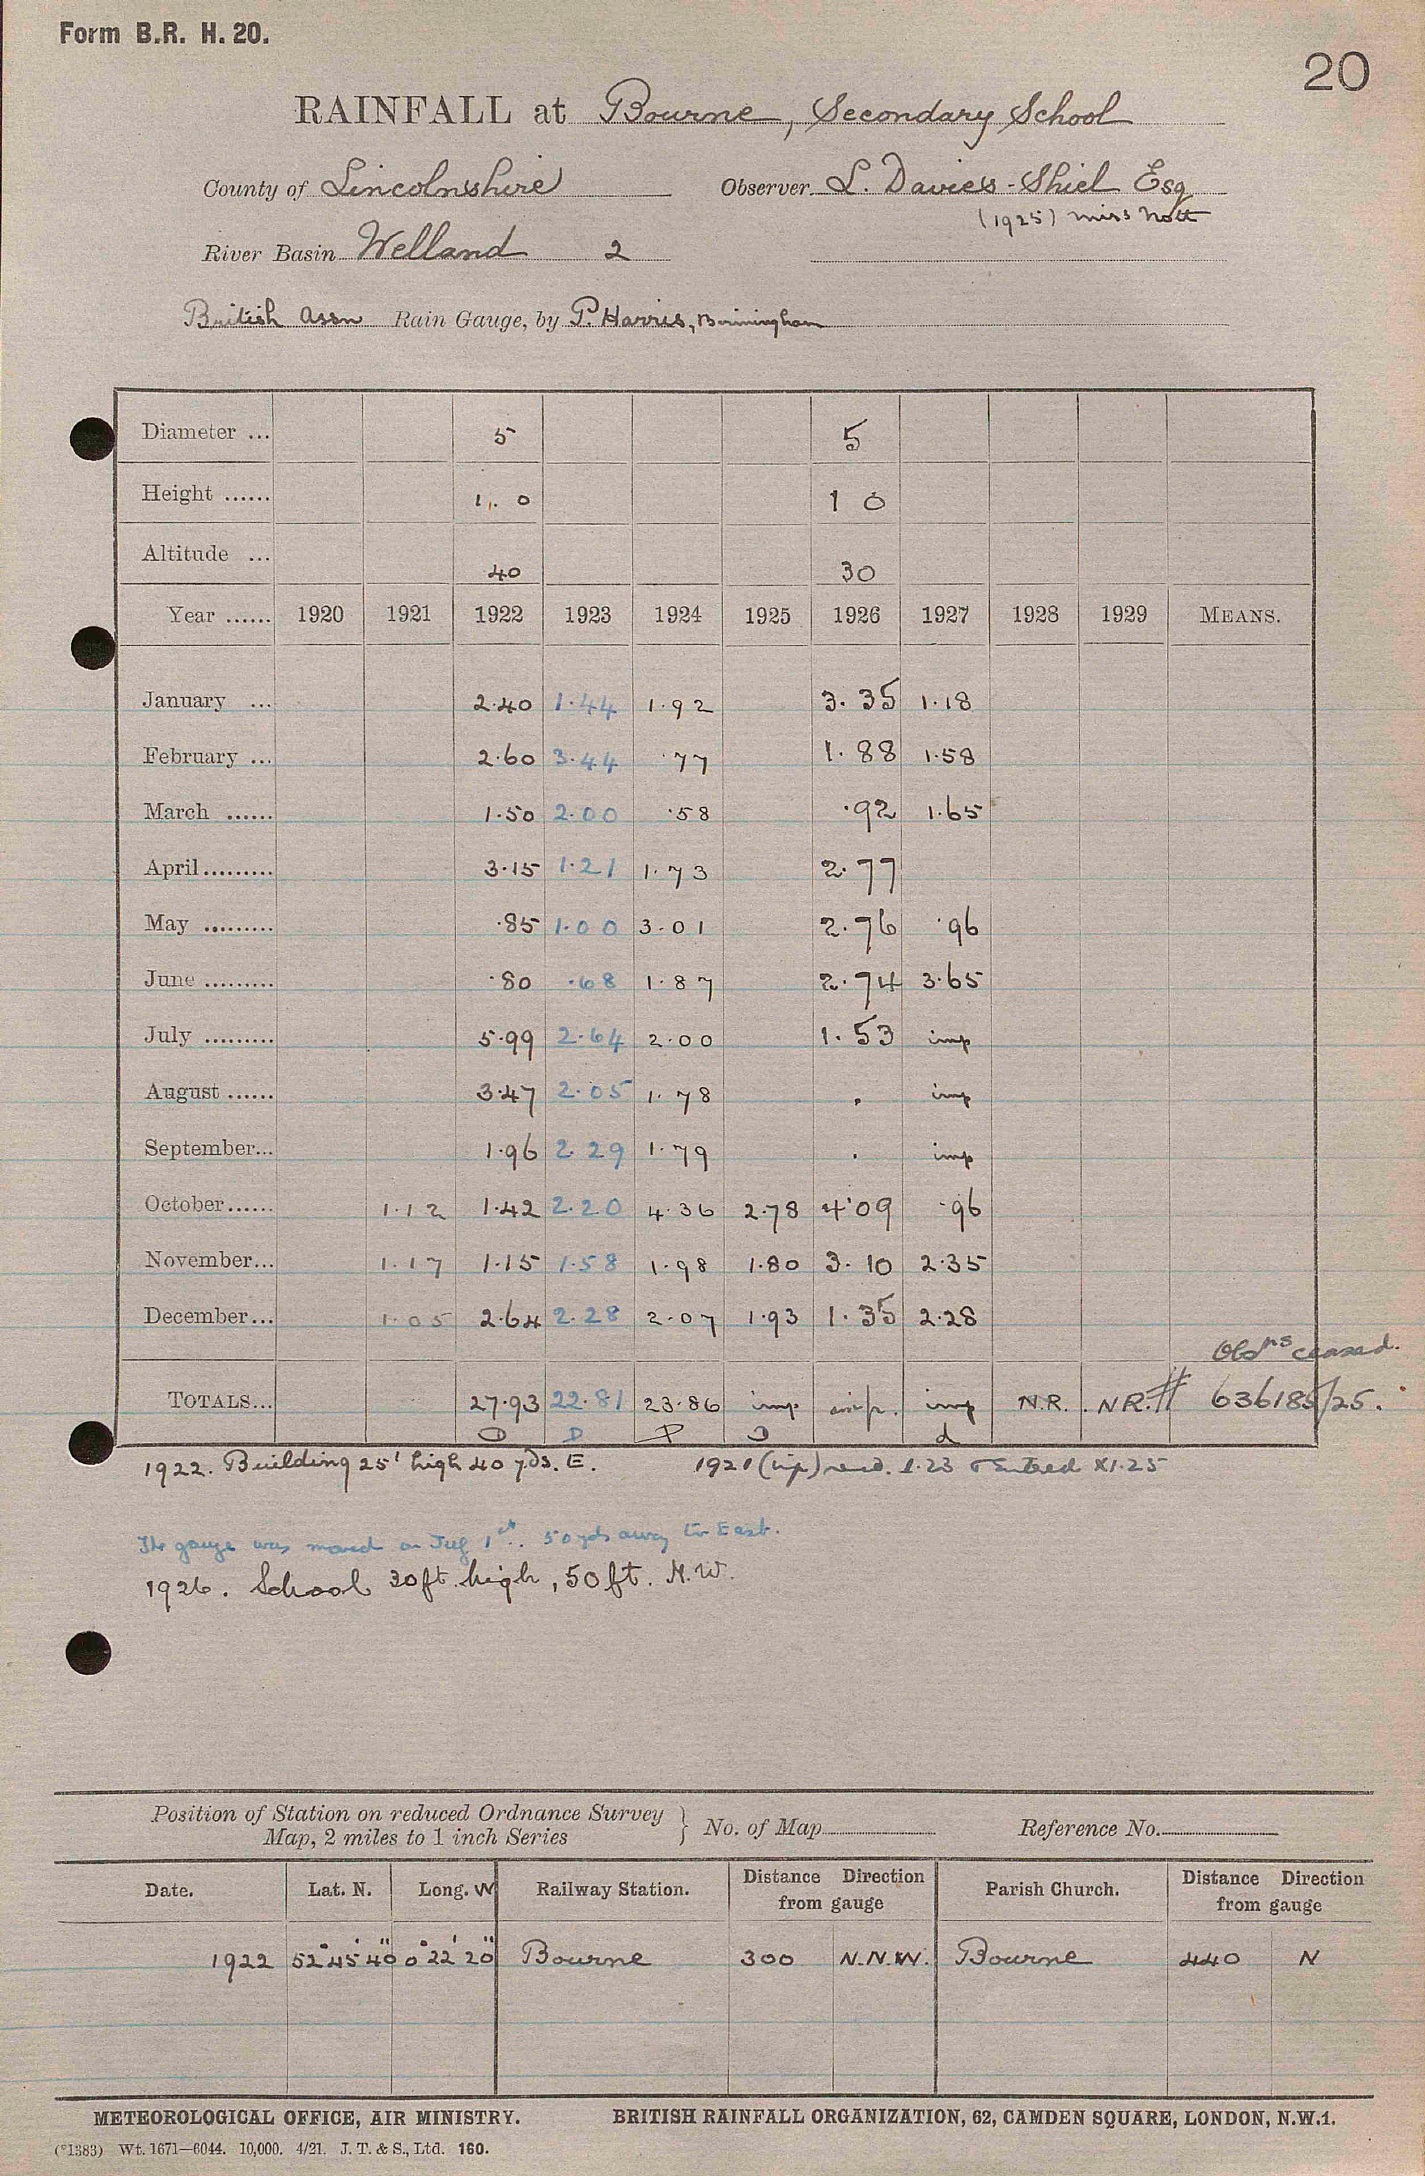 Form B.R. H. 20.
20
RAINFALL at Bourne, Secondary School
County of Lincolnshire Observer L. Davies-Shiel Esq
(1925) Miss Nott
River Basin Welland 2
British Assn Rain Gauge, by P. Harris, Birmingham
Diameter ... 5 5
Height ...... 1. 0 1 0
Altitude ... 40 30
Year ...... 1920 1921 1922 1923 1924 1925 1926 1927 1928 1929 MEANS.
January ... 2.40 1.44 1.92 3.35 1.18
February ... 2.60 3.44 .77 1.88 1.58
March ...... 1.50 2.00 .58 .92 1.65
April ......... 3.15 1.21 1.73 2.77
May ......... .85 1.00 3.01 2.76 .96
June ......... .80 .68 1.87 2.74 3.65
July ......... 5.99 2.64 2.00 1.53 imp
August ...... 3.47 2.05 1.78 . imp
September... 1.96 2.29 1.79 . imp
October...... 1.12 1.42 2.20 4.36 2.78 4.09 .96
November... 1.17 1.15 1.58 1.98 1.80 3.10 2.35
December... 1.05 2.64 2.28 2.07 1.93 1.35 2.28
Obsns ceased.
TOTALS... 27.93 22.81 23.86 imp imp. imp N.R. N.R.# 636185/25.
D D P D d
1922. Building 25' high 40 yds. E. 1921 (imp) 1.23 X1.25
The gauge was moved on July 1st. 50 yds away to East.
1926. School 30ft. high, 50ft. N.W.
Position of Station on reduced Ordnance Survey Map, 2 miles to 1 inch Series } No. of Map Reference No.
Date. Lat. N. Long. W Railway Station. Distance Direction from gauge Parish Church. Distance Direction from gauge
1922 52°45'40" 0°22'20" Bourne 300 N.N.W. Bourne 440 N
METEOROLOGICAL OFFICE, AIR MINISTRY. BRITISH RAINFALL ORGANIZATION, 62, CAMDEN SQUARE, LONDON, N.W.1.
(*1383) Wt. 1671—6044. 10,000. 4/21. J. T. & S., Ltd. 160.